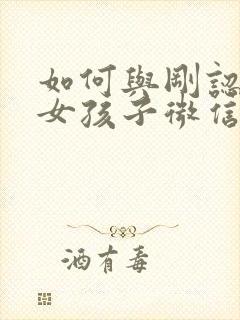 如何與剛認
女孩子微信
酒有毒